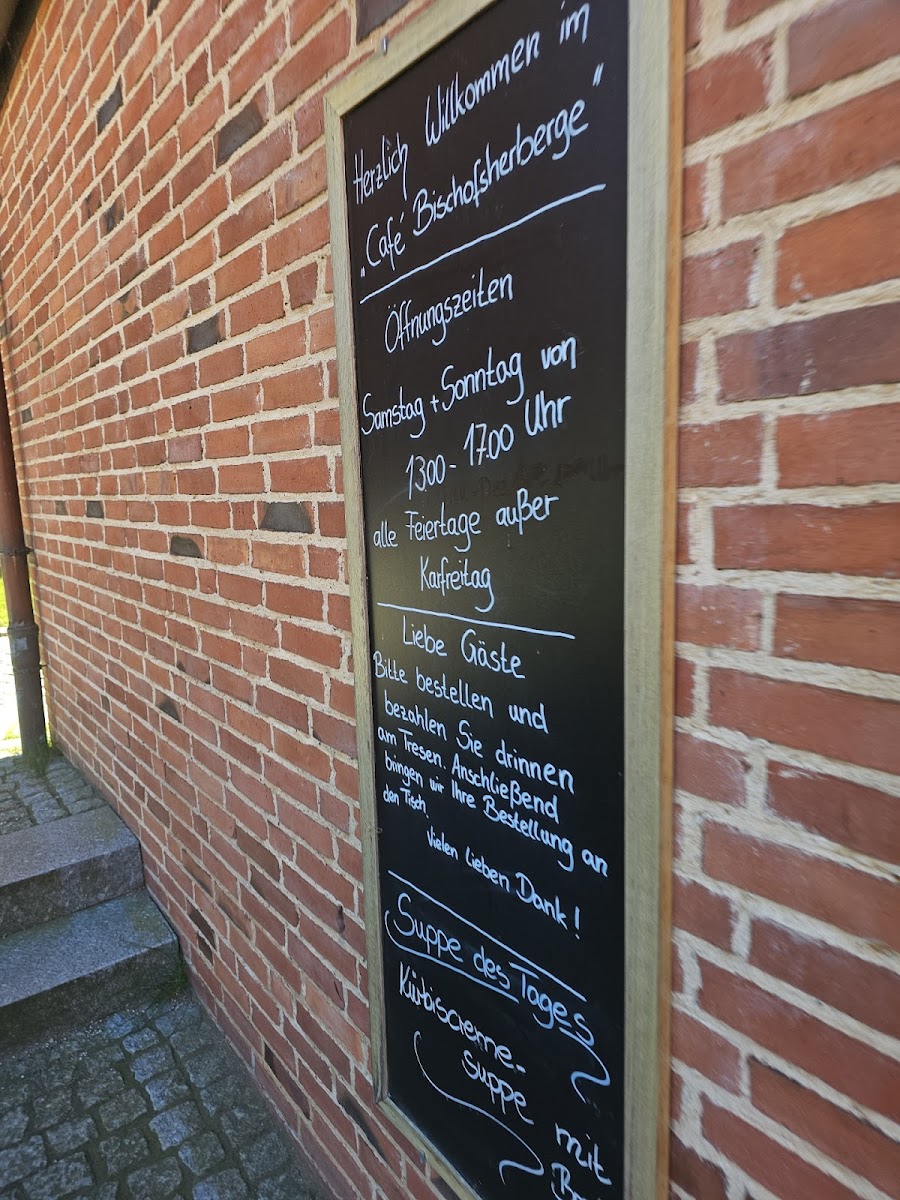 Herzlich Willkommen im
„Café Bischofsherberge"
Öffnungszeiten
Samstag + Sonntag von
13.00 - 17.00 Uhr
alle Feiertage außer
Karfreitag
Liebe Gäste
Bitte bestellen und
bezahlen Sie drinnen
am Tresen. Anschließend
bringen wir Ihre Bestellung an
den Tisch.
Vielen lieben Dank!
Suppe des Tages
Kürbiscreme-
suppe mit